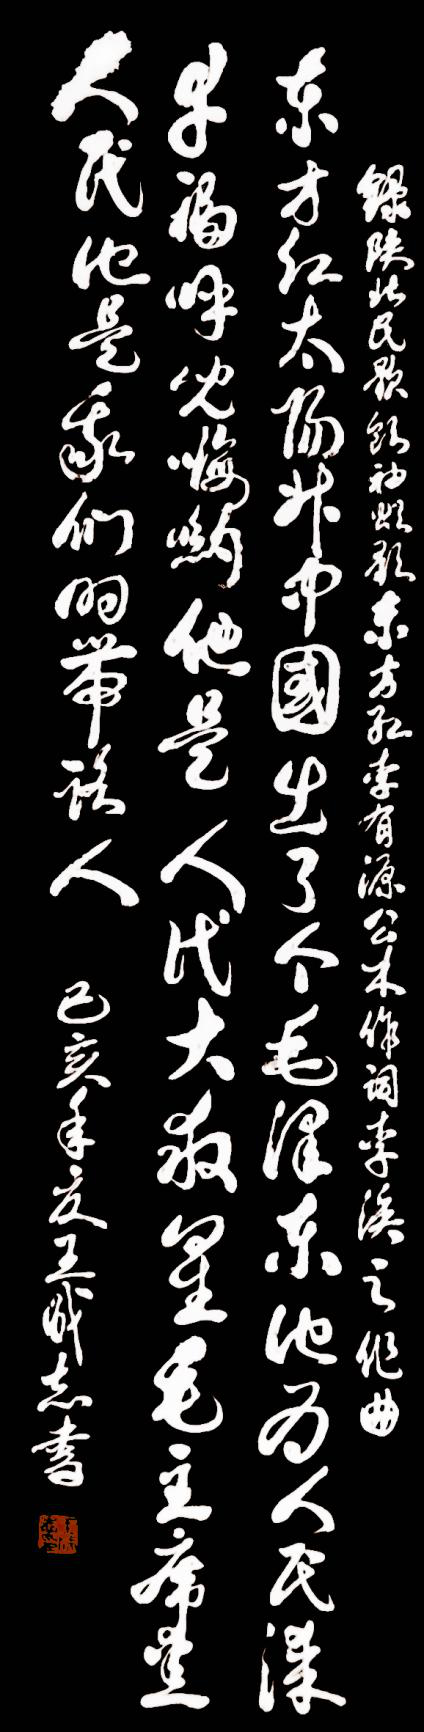 录陕北民歌领袖颂歌东方红李有源公木作词李涣之作曲
东方红太阳升中國出了个毛泽东他为人民谋
幸福呼儿嗨哟他是人民大救星毛主席爱
人民他是我们的带路人
己亥年夏王成志书